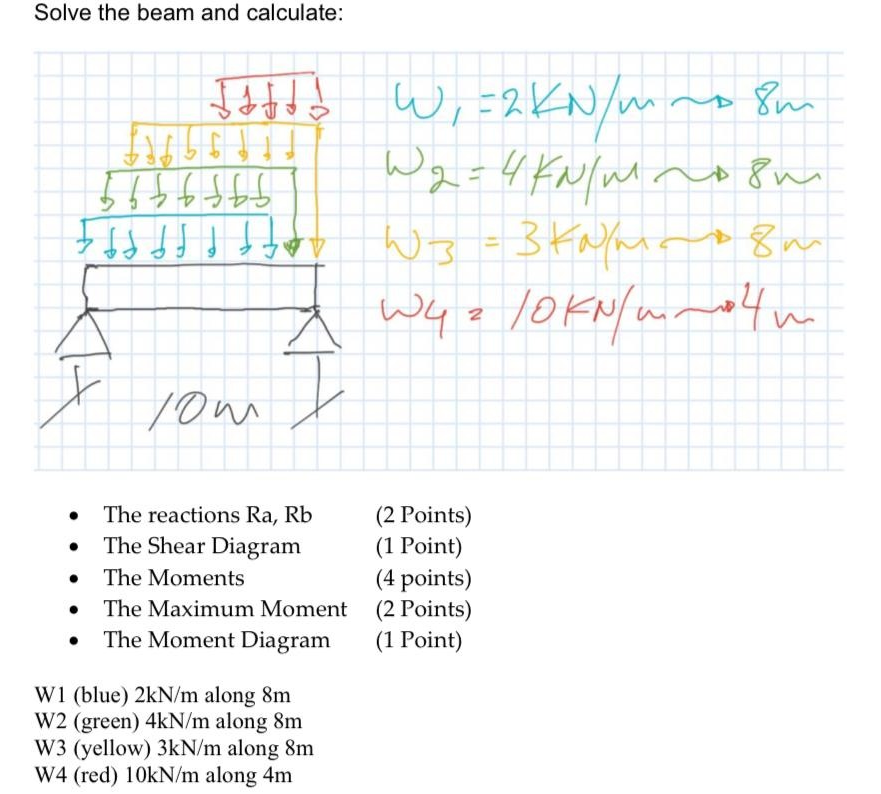 Solve the beam and calculate:
W1 =2KN/m → 8m
W2 = 4KN/m → 8m
W3 = 3KN/m → 8m
W4 = 10KN/m → 4m
10m
• The reactions Ra, Rb (2 Points)
• The Shear Diagram (1 Point)
• The Moments (4 points)
• The Maximum Moment (2 Points)
• The Moment Diagram (1 Point)
W1 (blue) 2kN/m along 8m
W2 (green) 4kN/m along 8m
W3 (yellow) 3kN/m along 8m
W4 (red) 10kN/m along 4m